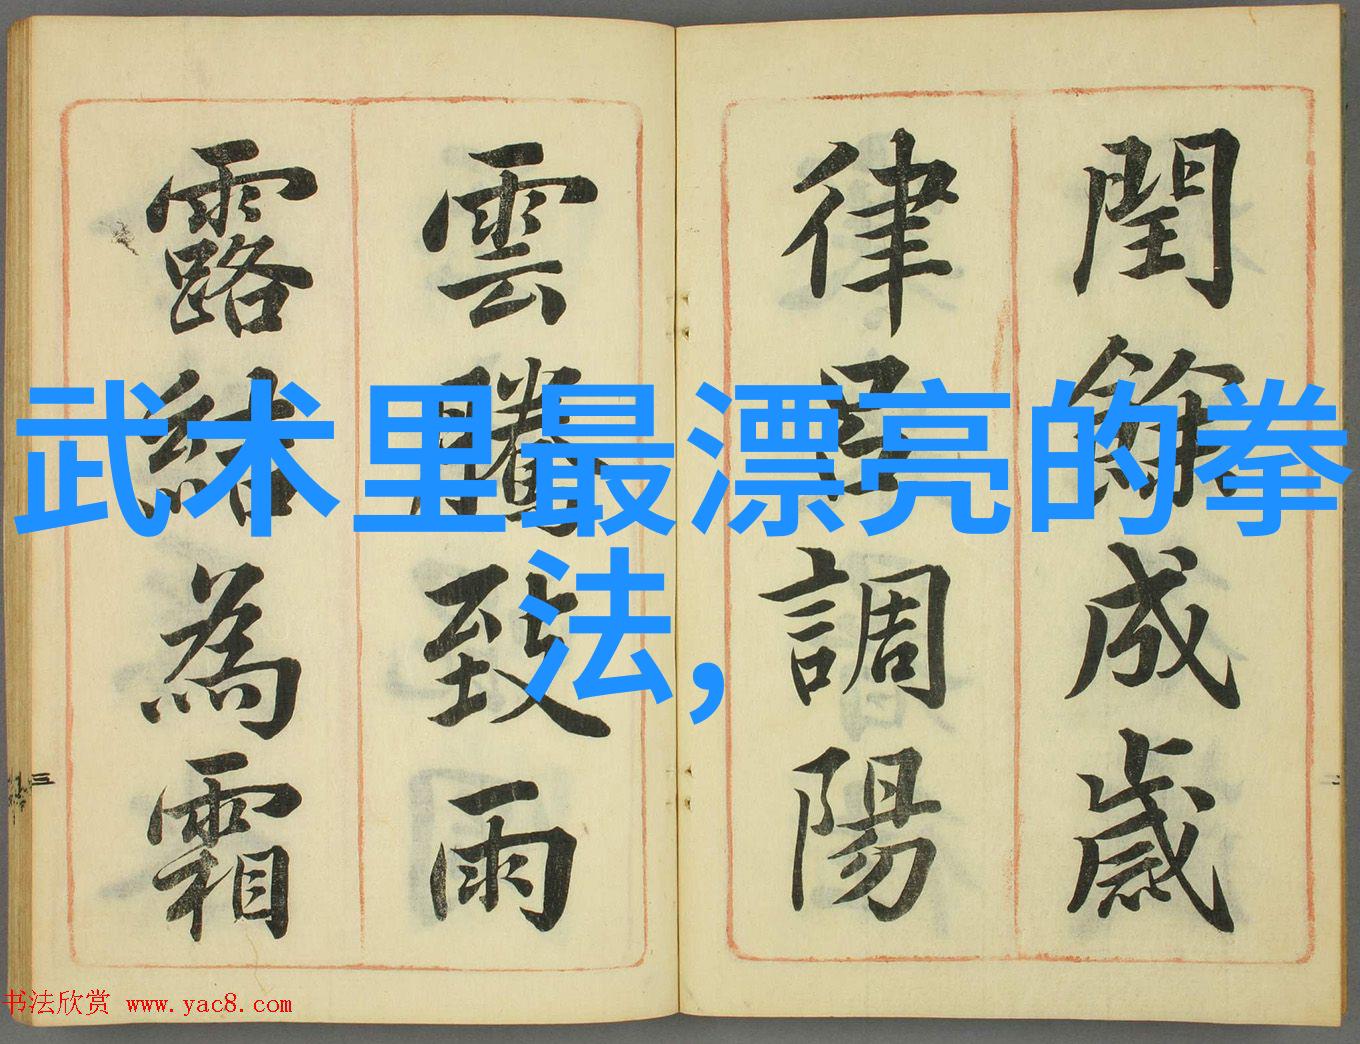 武术里最漂亮的拳
法,
閏餘成歲
律呂調陽
雲騰致雨
露結為霜
三
书法欣赏 www.yac8.com